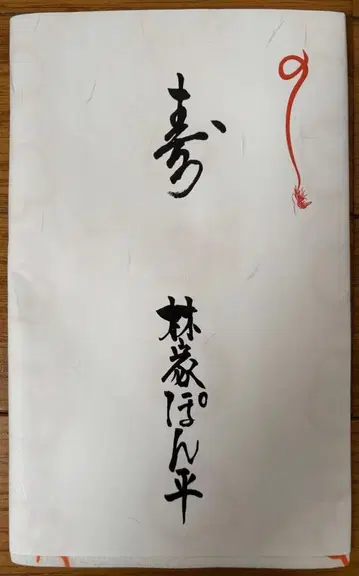 寿
林家ぽん平